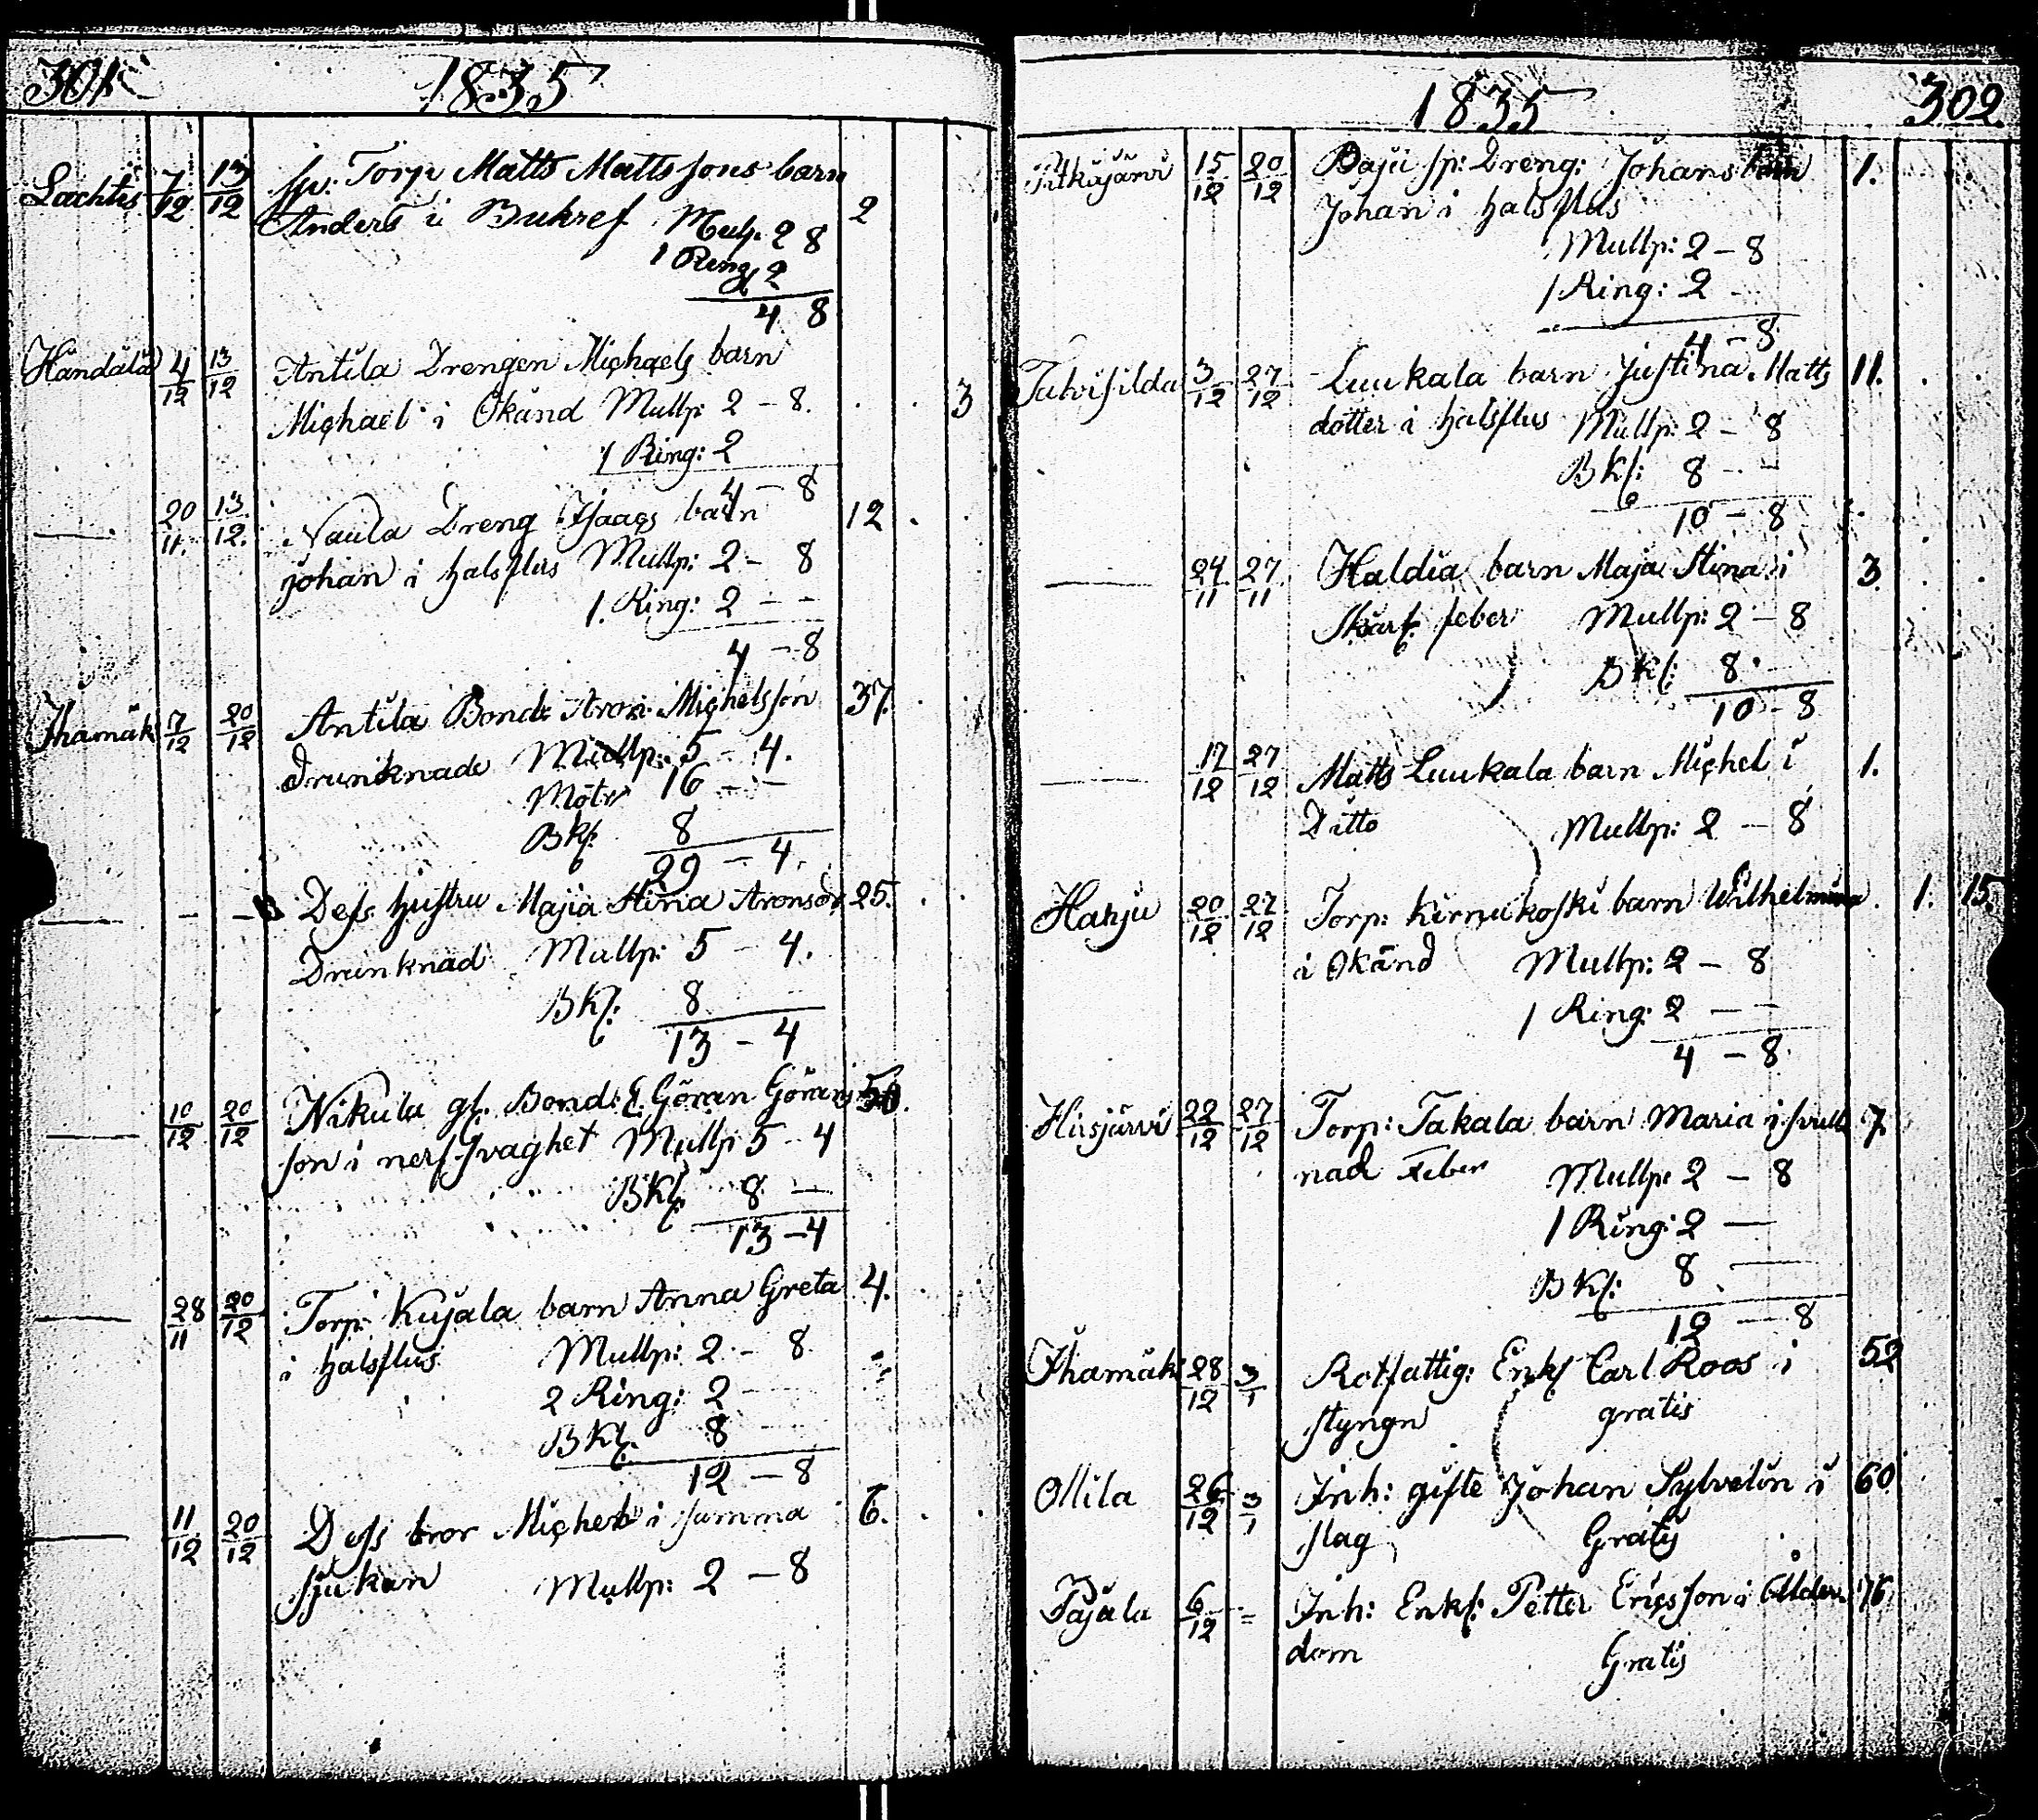 301
1835
Lachtis 7/12 13/12 sp: Torp Matts Mattssons barn
Anders i Bukref Mulp. 2 8 2
1 Ring 2
4 8
Handala 4/12 13/12 Antila Drengen Michaels barn
Michael i Okänd Mullp: 2 - 8. 3
1 Ring: 2
4 - 8
20/11. 13/12. Naula Dreng Isaacs barn 12
Johan i halsflus Mullp: 2 - 8
1. Ring: 2 - -
4 - 8
Ihamäk 7/12 20/12 Antila Bond: Aron Michelsson 37.
drunknade Mullp: 5 - 4.
16 - -
BKl: 8
29 - 4.
- - Dess hustru Maja Stina Aronsd: 25.
Drunknad Mullp: 5 - 4.
BKl: 8
13 - 4
10/12 20/12 Nikula gl. Bond: E. Göran Görans 50.
son i nerfsvaghet Mullp: 5 - 4
BKl: 8 -
13 - 4
28/11 20/12 Torp: Kujala barn Anna Greta 4.
i halsflus Mullp: 2 - 8
2 Ring: 2 -
BKl: 8
12 - 8
11/12 20/12 Dess bror Michel i samma 6.
sjukan Mullp: 2 - 8
1835
302.
Pitkäjärvi 15/12 20/12 Paju sp: Dreng: Johans barn 1.
Johan i halsflus
Mullp: 2 - 8
1 Ring: 2
4 - 8
Talvisilda 3/12 27/12 Luukala barn Justina Matts 11.
dotter i halsflus Mullp: 2 - 8
BKl: 8 - -
10 - 8
24/11 27/11 Haldia barn Maja Stina i 3
Skarl: feber Mullp: 2 - 8
BKl: 8.
10 - 8
17/12 27/12 Matts Luukala barn Michel i 1.
Ditto Mullp: 2 - 8
Harju 20/12 27/12 Torp: Kirnukoski barn Wilhelmina 1. 15.
i Okänd Mullp: 2 - 8
1 Ring: 2 - -
4 - 8
Hirsjärvi 22/12 27/12 Torp: Takala barn Maria i svull 7.
nad Feber Mullp: 2 - 8
1 Ring: 2 -
BKl: 8 -
12 - 8
Ihamäk 28/12 3/1 Rotfattig: Enkl Carl Roos i 52
styngn gratis
Ollila 26/12 3/1 Inh: gifte Johan Sylvelin i 60
slag Gratis
Pajala 6/12 = Inh: Enkl: Petter Ericsson i Ålder 76
dom Gratis